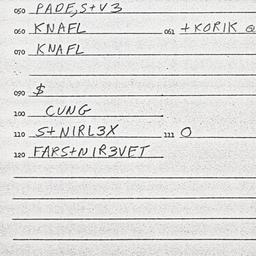 050 PADE,S+V3
060 KNAFL 061 +KORIK @
070 KNAFL
090 $
100 CUNG
110 S+NIRL3X 111 O
120 FARS+NIR3VET